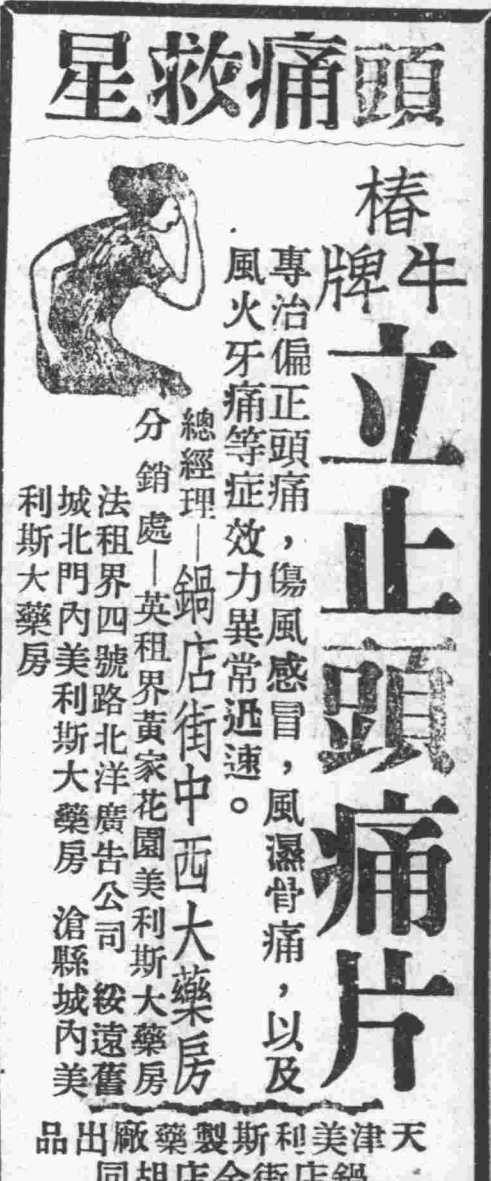 頭痛救星
椿
牛牌
立止頭痛片
專治偏正頭痛,傷風感冒,風濕骨痛,以及
風火牙痛等症效力異常迅速。
總經理—鍋店街中西大藥房
分銷處—英租界黃家花園美利斯大藥房
法租界四號路北洋廣告公司 綏遠舊
城北門內美利斯大藥房 滄縣城內美
利斯大藥房
天津美利斯製藥廠出品
鍋店街金店胡同